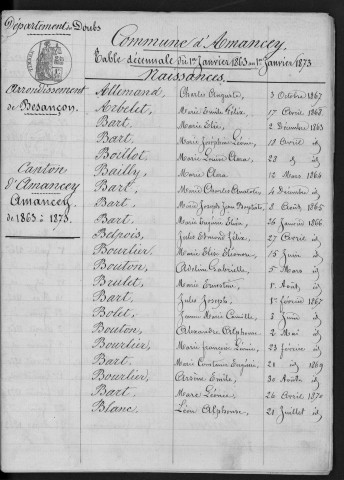 Département du Doubs
Commune d'Amancey
Table décennale du 1er Janvier 1863 au 1er Janvier 1873
Naissances.
Arrondissement
de Besançon.
Canton
d'Amancey
Amancey
de 1863 à 1873.
Allemand Charles Auguste 3 Octobre 1867
Arbelet, Marie Emile Félix 17 Avril 1868
Bart, Marie Elise, 2 Décembre 1863
Bart, Marie Joséphine Léonie, 18 Avril id
Boillot, Marie Louise Clara 28 id
Bailly, Marie Clara 12 Mars 1864
Bart, Marie Charles Anatole, 4 Décembre id
Bart, Marie Joseph Jean Baptiste, 8 Août 1865
Bart, Marie Eugénie 26 Janvier 1866
Jules Edmond Félix, 27 Avril id
Bourlier, Marie Elise Eléonore, 15 Juin id
Bouton, Adeline Gabrielle, 5 Mars id
Brulet, Marie Ernestine, 8 Août, id
Bart, Jules Joseph, 1er Février 1867
Bolet, Jeanne Marie Camille, 3 Juin id
Bouton, Alexandre Alphonse, 2 Mai id
Bourlier, Marie François Léonie, 23 Février id
Bart, Marie Constance Eugénie, 21 id 1869
Bourlier, Arsène Emile, 30 Août id
Bart, Marie Léonie, 26 Avril 1870
Blanc, Léon Alphonse, 21 Juillet id